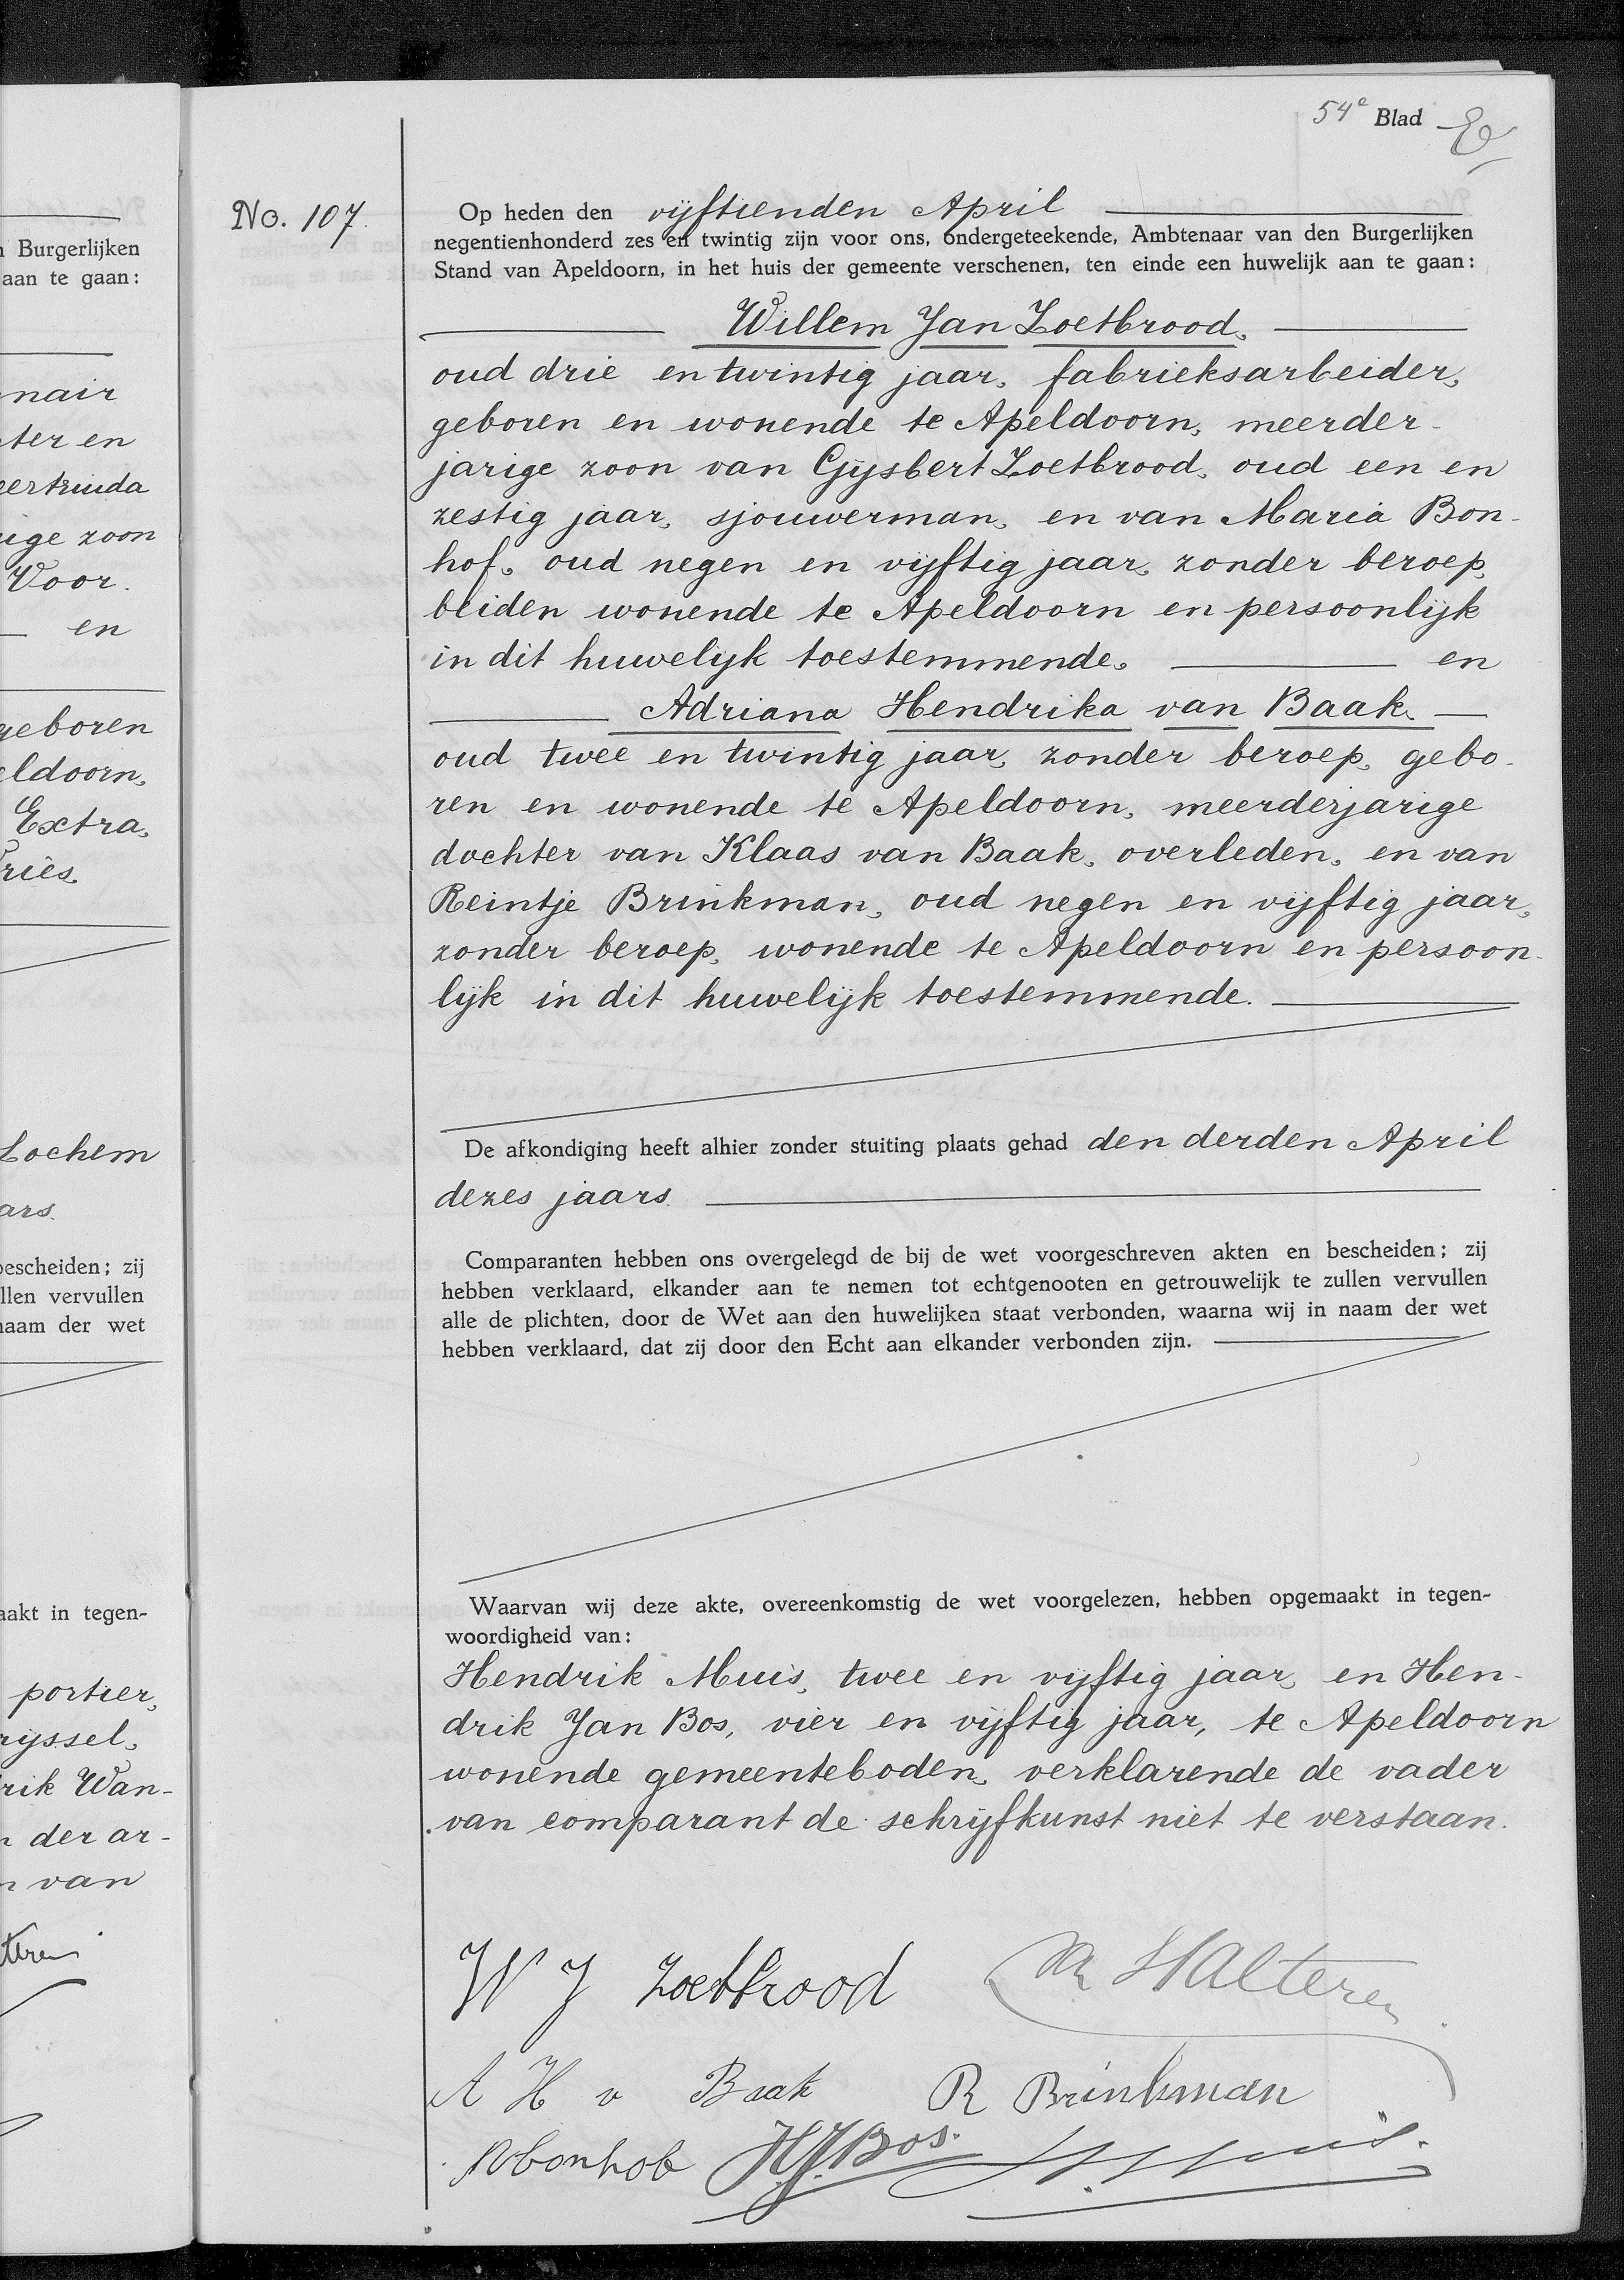 54e Blad
No. 107.
Op heden den vijftienden April
negentienhonderd zes en twintig zijn voor ons, ondergeteekende, Ambtenaar van den Burgerlijken
Stand van Apeldoorn, in het huis der gemeente verschenen, ten einde een huwelijk aan te gaan:
Willem Jan Zoetbrood,
oud drie en twintig jaar, fabrieksarbeider,
geboren en wonende te Apeldoorn, meerder-
jarige zoon van Gijsbert Zoetbrood, oud een en
zestig jaar, sjouwerman, en van Maria Bon-
hof, oud negen en vijftig jaar, zonder beroep,
beiden wonende te Apeldoorn en persoonlijk
in dit huwelijk toestemmende, en
Adriana Hendrika van Baak,
oud twee en twintig jaar, zonder beroep, gebo-
ren en wonende te Apeldoorn, meerderjarige
dochter van Klaas van Baak, overleden, en van
Reintje Brinkman, oud negen en vijftig jaar,
zonder beroep, wonende te Apeldoorn en persoon-
lijk in dit huwelijk toestemmende.
De afkondiging heeft alhier zonder stuiting plaats gehad den derden April
dezes jaars.
Comparanten hebben ons overgelegd de bij de wet voorgeschreven akten en bescheiden; zij
hebben verklaard, elkander aan te nemen tot echtgenooten en getrouwelijk te zullen vervullen
alle de plichten, door de Wet aan den huwelijken staat verbonden, waarna wij in naam der wet
hebben verklaard, dat zij door den Echt aan elkander verbonden zijn.
Waarvan wij deze akte, overeenkomstig de wet voorgelezen, hebben opgemaakt in tegen-
woordigheid van:
Hendrik Muis, twee en vijftig jaar, en Hen-
drik Jan Bos, vier en vijftig jaar, te Apeldoorn
wonende gemeenteboden, verklarende de vader
van comparant de schrijfkunst niet te verstaan.
W J Zoetbrood Walteren
A H v Baak R Brinkman
M bonhof HJBos. H Muis.
n Burgerlijken
aan te gaan:
nair
ter en
eertruida
ige zoon
Voor.
en
geboren
eldoorn,
Extra,
riès
Lochem
ars.
bescheiden; zij
llen vervullen
naam der wet
aakt in tegen-
portier,
rijssel,
rik Wan-
n der ar-
n van
teren